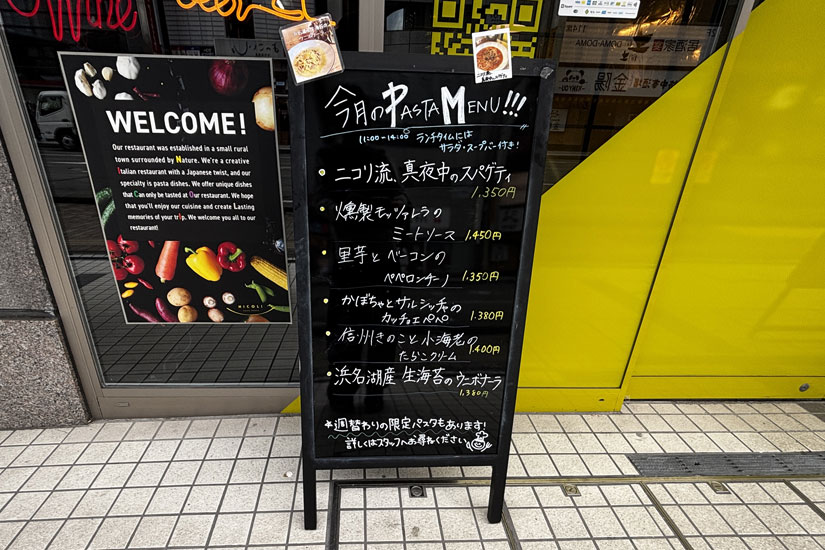 Wine
WELCOME!
Our restaurant was established in a small rural
town surrounded by Nature. We're a creative
Italian restaurant with a Japanese twist, and our
specialty is pasta dishes. We offer unique dishes
that Can only be tasted at Our restaurant. We hope
that you'll enjoy our cuisine and create Lasting
memories of your trIp. We welcome you all to our
restaurant!
NICOLI
今月のPASTA MENU!!!
11:00-14:00 ランチタイムには
サラダ・スープバー付き!
・ニコリ流、真夜中のスパゲティ
1,350円
・燻製モッツァレラの
ミートソース 1,450円
・里芋とベーコンの
ペペロンチーノ 1,350円
・かぼちゃとサルシッチャの
カッチョエペペ 1,380円
・信州きのこと小海老の
たらこクリーム 1,400円
・浜名湖産 生海苔のウニボナーラ
1,380円
★週替わりの限定パスタもあります!
詳しくはスタッフへお尋ねください